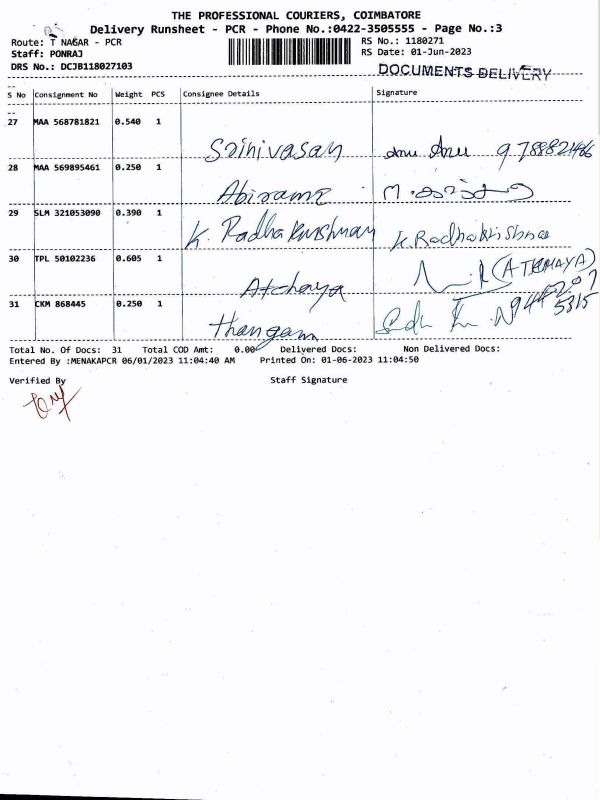 THE PROFESSIONAL COURIERS, COIMBATORE
Delivery Runsheet - PCR - Phone No.:0422-3505555 - Page No.:3
Route: T NAGAR - PCR RS No.: 1180271
Staff: PONRAJ RS Date: 01-Jun-2023
DRS No.: DCJB118027103 DOCUMENTS DELIVERY
S No Consignment No Weight PCS Consignee Details Signature
27 MAA 568781821 0.540 1
Srinivasan Anu Anu
28 MAA 569895461 0.250 1
Abirami
29 SLM 321053090 0.390 1
K. Radhakrishnan K. Radhakrishna
30 TPL 50102236 0.605 1
Atchaya
31 CKM 868445 0.250 1
Thangam
Total No. Of Docs: 31 Total COD Amt: 0.00 Delivered Docs: Non Delivered Docs:
Entered By :MENAKAPCR 06/01/2023 11:04:40 AM Printed On: 01-06-2023 11:04:50
Verified By Staff Signature